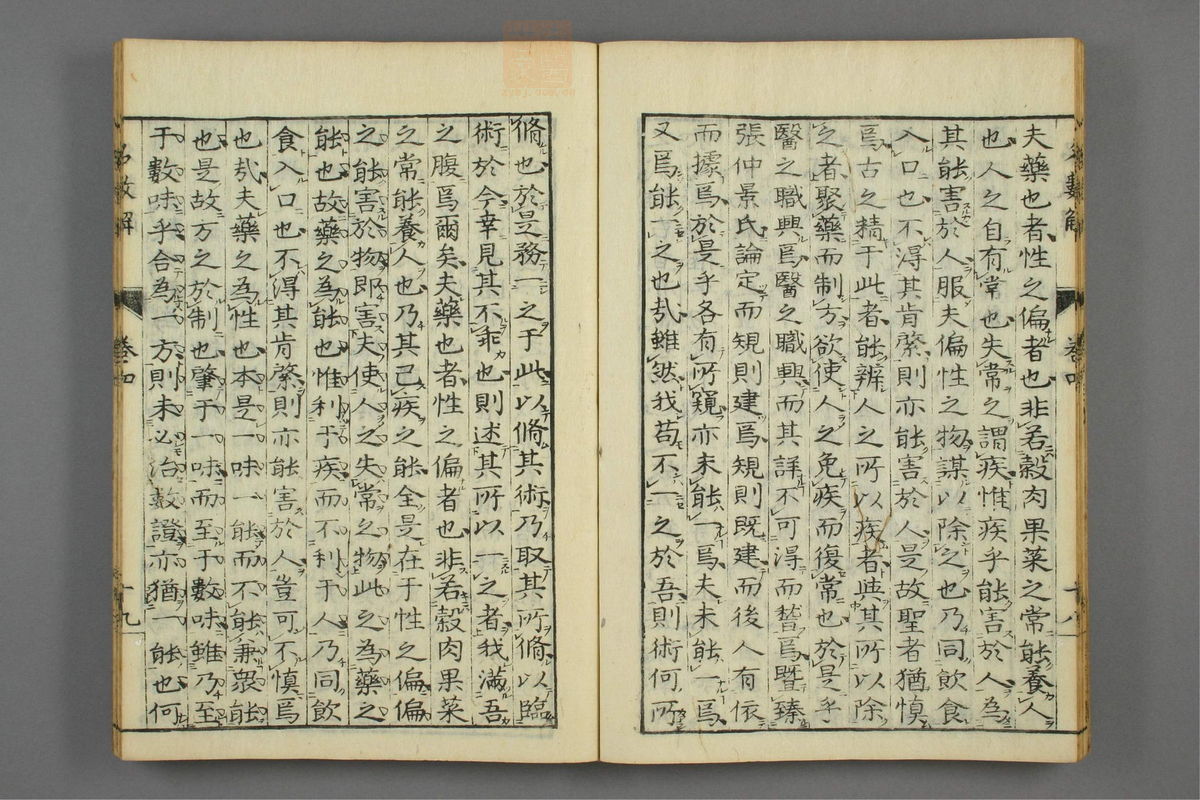 夫藥也者性之偏者也非若穀肉果菜之常能養人
也人之自有常也失常之謂疾惟疾乎能害於人為
其能害於人服夫偏性之物謀以除之也乃同飲食
入口也不得其肯綮則亦能害於人是故聖者猶慎
焉古之精于此者能辨人之所以疾者與其所以除
之者聚藥而制方欲使人之免疾而復常也於是乎
醫之職興焉醫之職興而其詳不可得而暬焉暨臻
張仲景氏論定而規則建焉規則既建而後人有依
而據焉於是乎各有所窺亦未能一焉夫未能一焉
又焉能一之也哉雖然我苟不一之於吾則術何所
脩也於是務一之于此以脩其術乃取其所脩以臨
術於今幸見其不乖也則述其所以一之者我滿吾
之腹焉爾矣夫藥也者性之偏者也非若穀肉果菜
之常能養人也乃其已疾之能全是在于性之偏偏
之能害於物即害夫使人之失常之物此之為藥之
能也故藥之為能也惟利于疾而不利于人乃同飲
食入口也不得其肯綮則亦能害於人豈可不慎焉
也哉夫藥之為性也本是一味一能而不能兼眾能
也是故方之於制也肇于一味而至于數味雖乃至
于數味乎合為一方則未必治數證亦猶一能也何
名數解 卷四 十八
名數解 卷四 十九